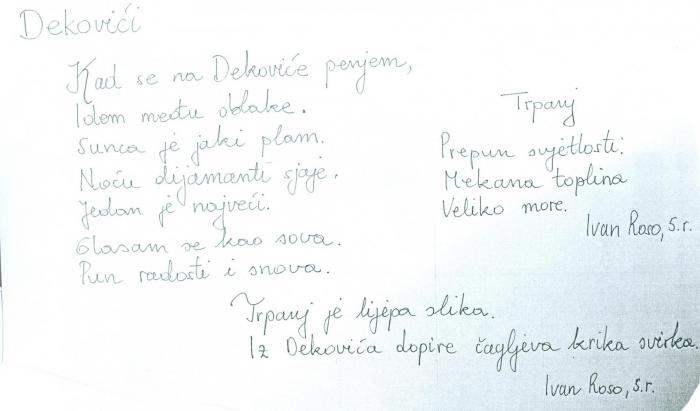 Dekovići
Kad se na Dekoviće penjem,
Idem među oblake.
Sunca je jaki plam.
Noću dijamanti sjaje.
Jedan je najveći.
Glasam se kao sova.
Pun radosti i snova.
Trpanj
Prepun svjetlosti.
Mekana toplina
Veliko more.
Ivan Roso, s.r.
Trpanj je lijepa slika.
Iz Dekovića dopire čagljeva krika svirka.
Ivan Roso, s.r.